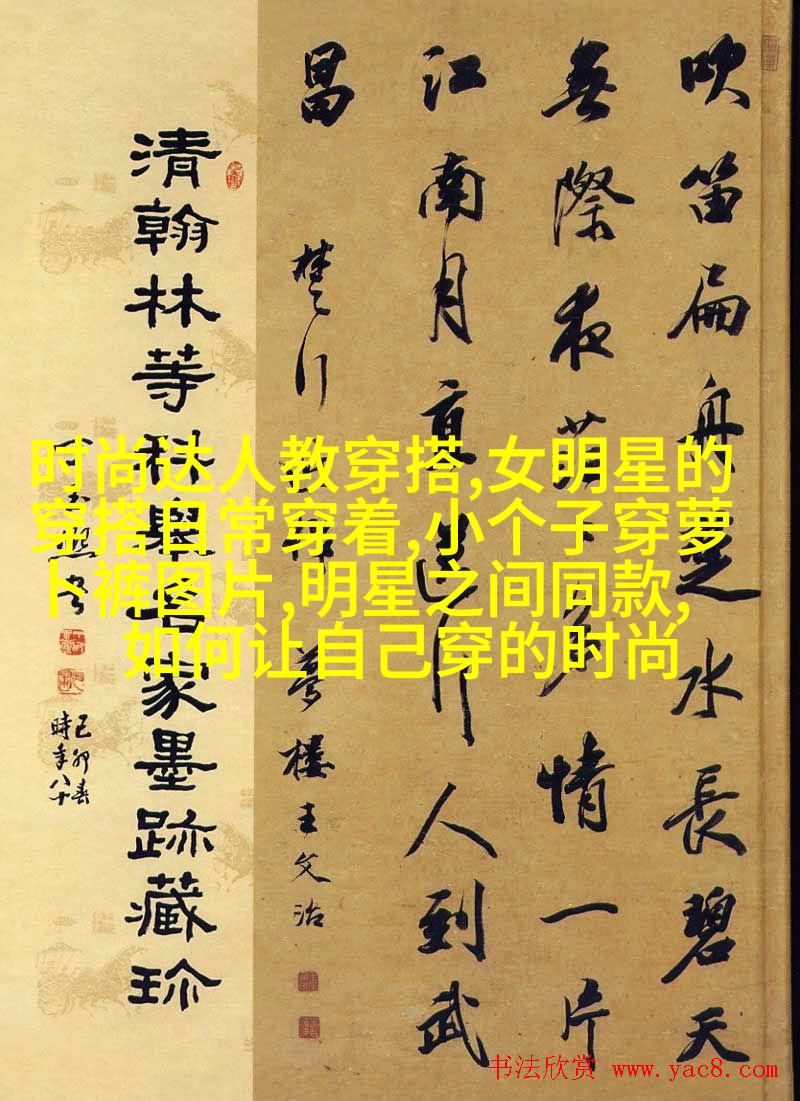 吹笛扁舟楚水長碧天
無際夜茫々多情一片
江南月直送行人到武
昌
楚行 夢樓王文治
清翰林等科舉名家墨跡藏珍
己卯春
時年八十
时尚达人教穿搭,女明星的
穿搭日常穿着,小个子穿萝
卜裤图片,明星之间同款,
如何让自己穿的时尚
书法欣赏 www.yac8.com